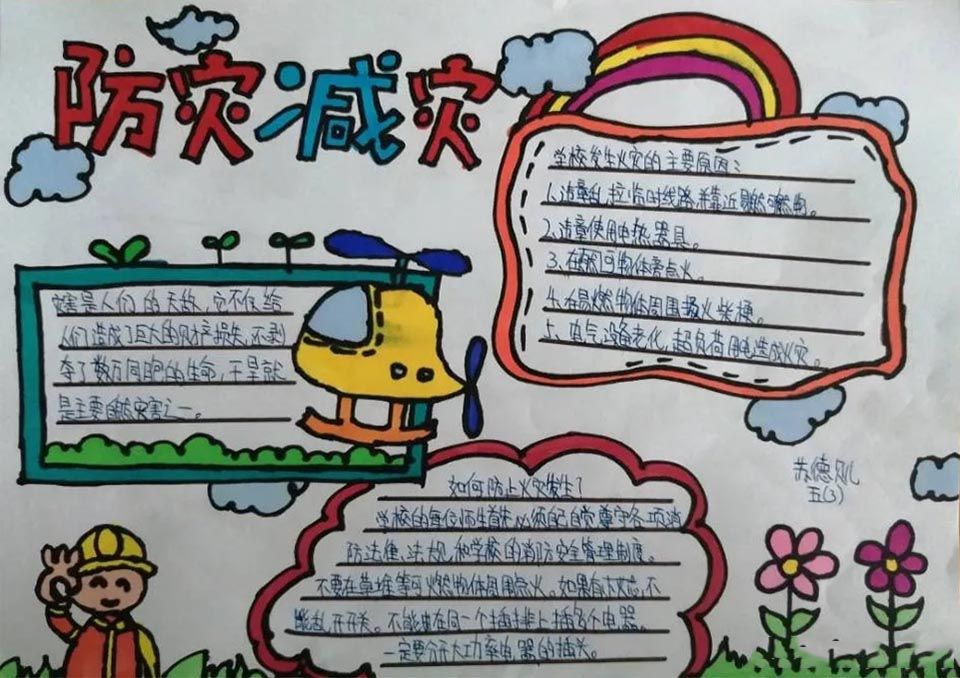 防灾减灾
灾害是人们的天敌,它不仅给
人们造成了巨大的财产损失,还剥
夺了数万同胞的生命,干旱就
是主要自然灾害之一。
学校发生火灾的主要原因:
1.违章乱拉临时线路,并靠近易燃可燃物。
2.违章使用电热器具。
3.在燃可物体旁点火。
4.在易燃物体周围摄火柴梗。
5.电气设备老化,超负荷用电造成火灾。
如何防止火灾发生了
学校的每位师生首先必须自觉遵守各项消
防法律、法规和学校的消防安全管理制度。
不要在草堆等可燃物体周围点火。如果有大意,不
能乱开开关。不能在同一个插排上插多个电器
一定要分开大功率电器的插头。
苏德
五(3)